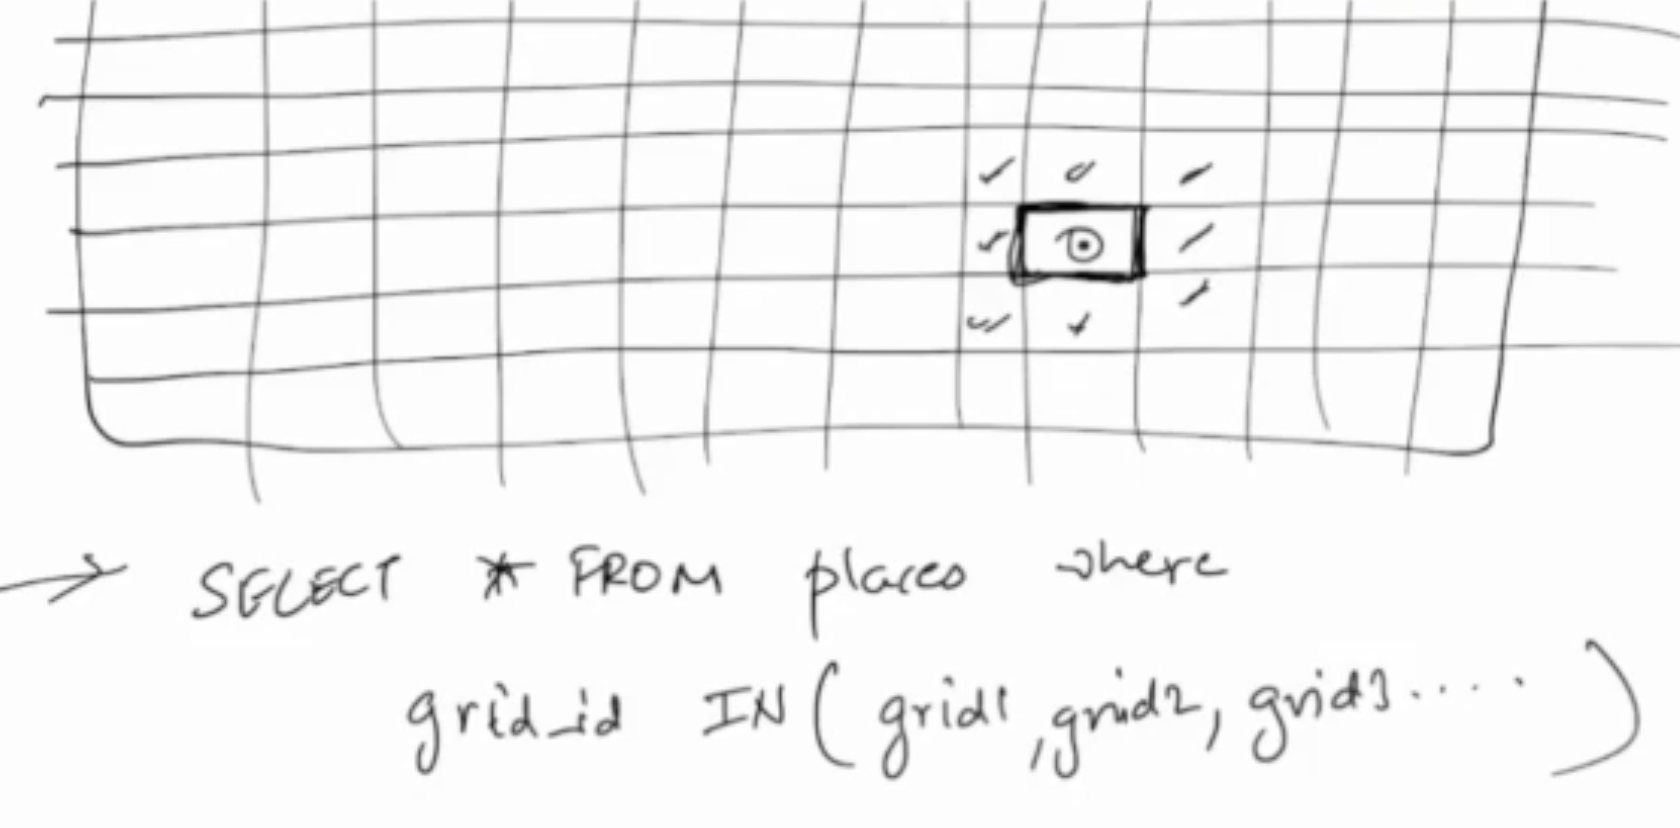 → SELECT * FROM places where
grid_id IN ( grid1, grid2, grid3.... )